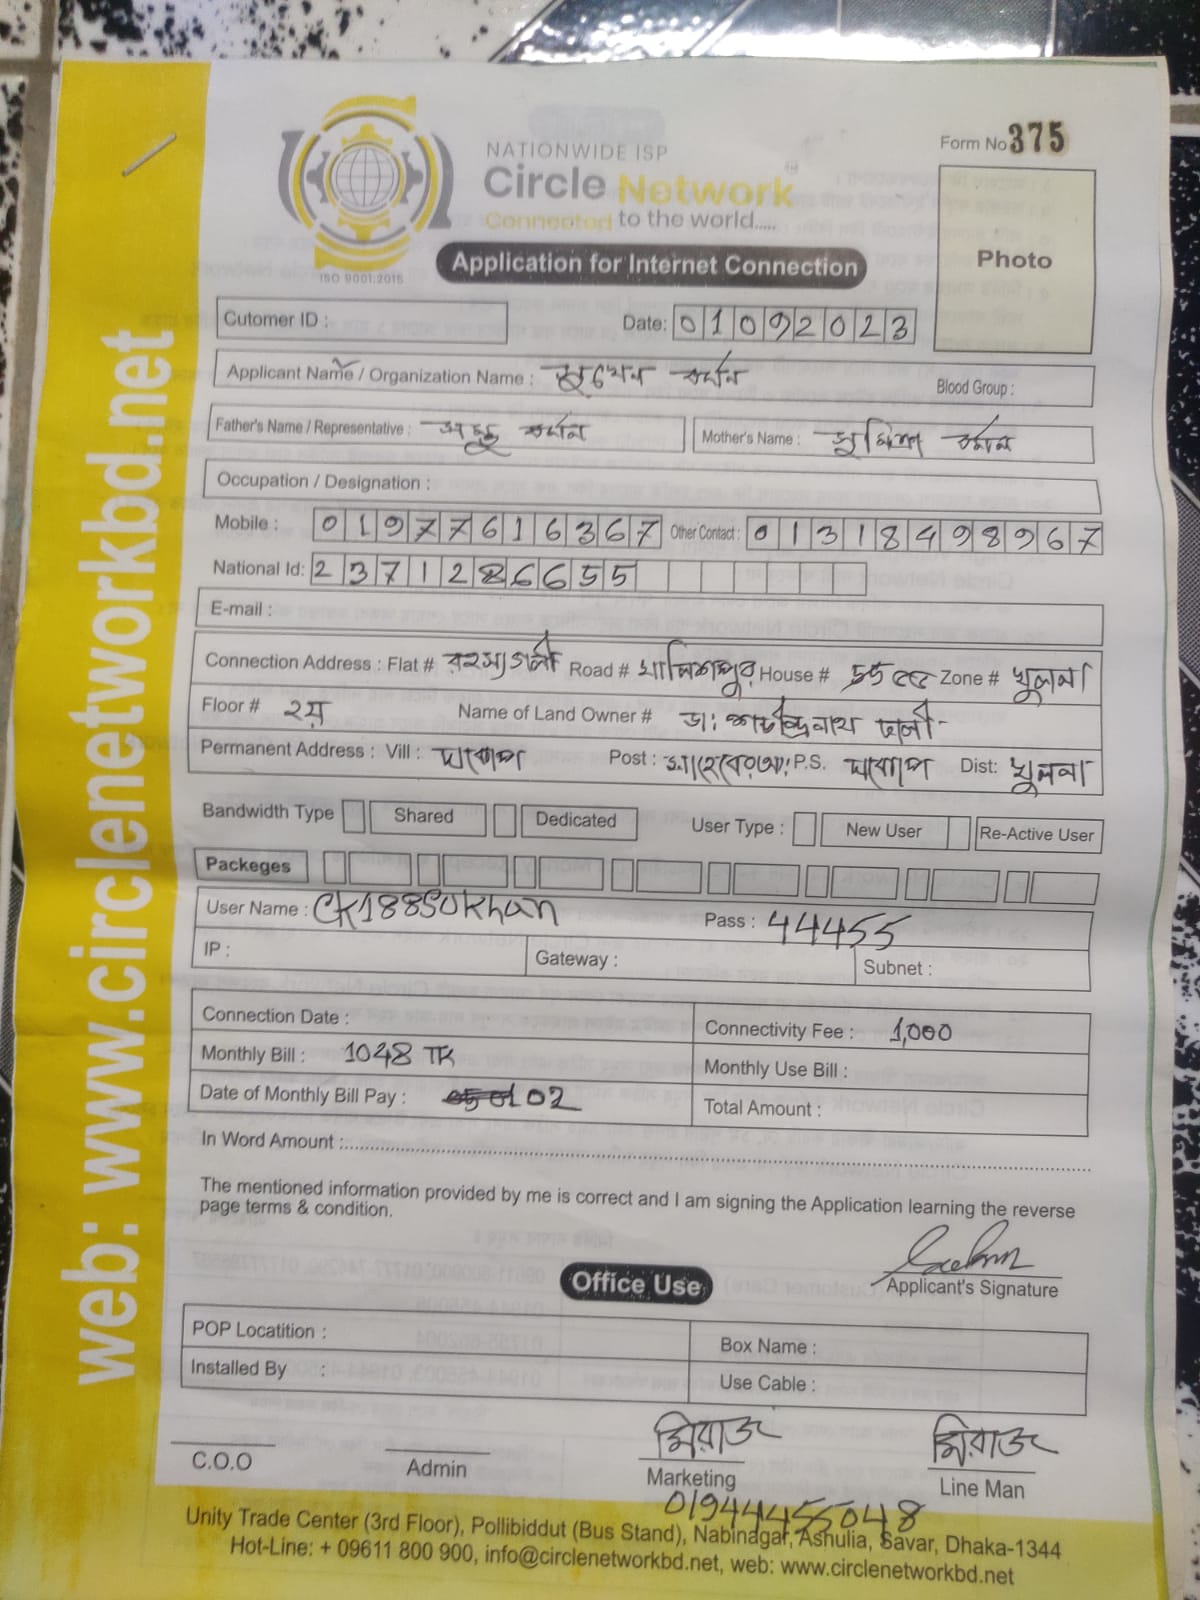 Form No 375
NATIONWIDE ISP
Circle Network
Connected to the world.....
ISO 9001:2015
Photo
Application for Internet Connection
Cutomer ID :
Date: 01092023
Applicant Name / Organization Name : সুখেন বর্মন
Blood Group :
Father's Name / Representative : বর্মন
Mother's Name : সুমিত্রা বর্মন
Occupation / Designation :
Mobile : 01977616367 Other Contact : 01318498967
National Id: 2371286655
E-mail :
Connection Address : Flat # Road # খালিশপুর House # 55 Zone # খুলনা
Floor # ২য় Name of Land Owner # ডা: শচীন্দ্রনাথ ঢালী
Permanent Address : Vill : দাকোপ Post : P.S. দাকোপ Dist: খুলনা
Bandwidth Type Shared Dedicated User Type : New User Re-Active User
Packeges
User Name : CK188Sukhan Pass : 44455
IP : Gateway : Subnet :
Connection Date : Connectivity Fee : 1,000
Monthly Bill : 1048 TK Monthly Use Bill :
Date of Monthly Bill Pay : 02 Total Amount :
In Word Amount :
The mentioned information provided by me is correct and I am signing the Application learning the reverse
page terms & condition.
Applicant's Signature
Office Use
POP Locatition : Box Name :
Installed By : Use Cable :
মিরাজ মিরাজ
C.O.O Admin Marketing Line Man
01944455048
Unity Trade Center (3rd Floor), Pollibiddut (Bus Stand), Nabinagar, Ashulia, Savar, Dhaka-1344
Hot-Line: + 09611 800 900, info@circlenetworkbd.net, web: www.circlenetworkbd.net
web: www.circlenetworkbd.net